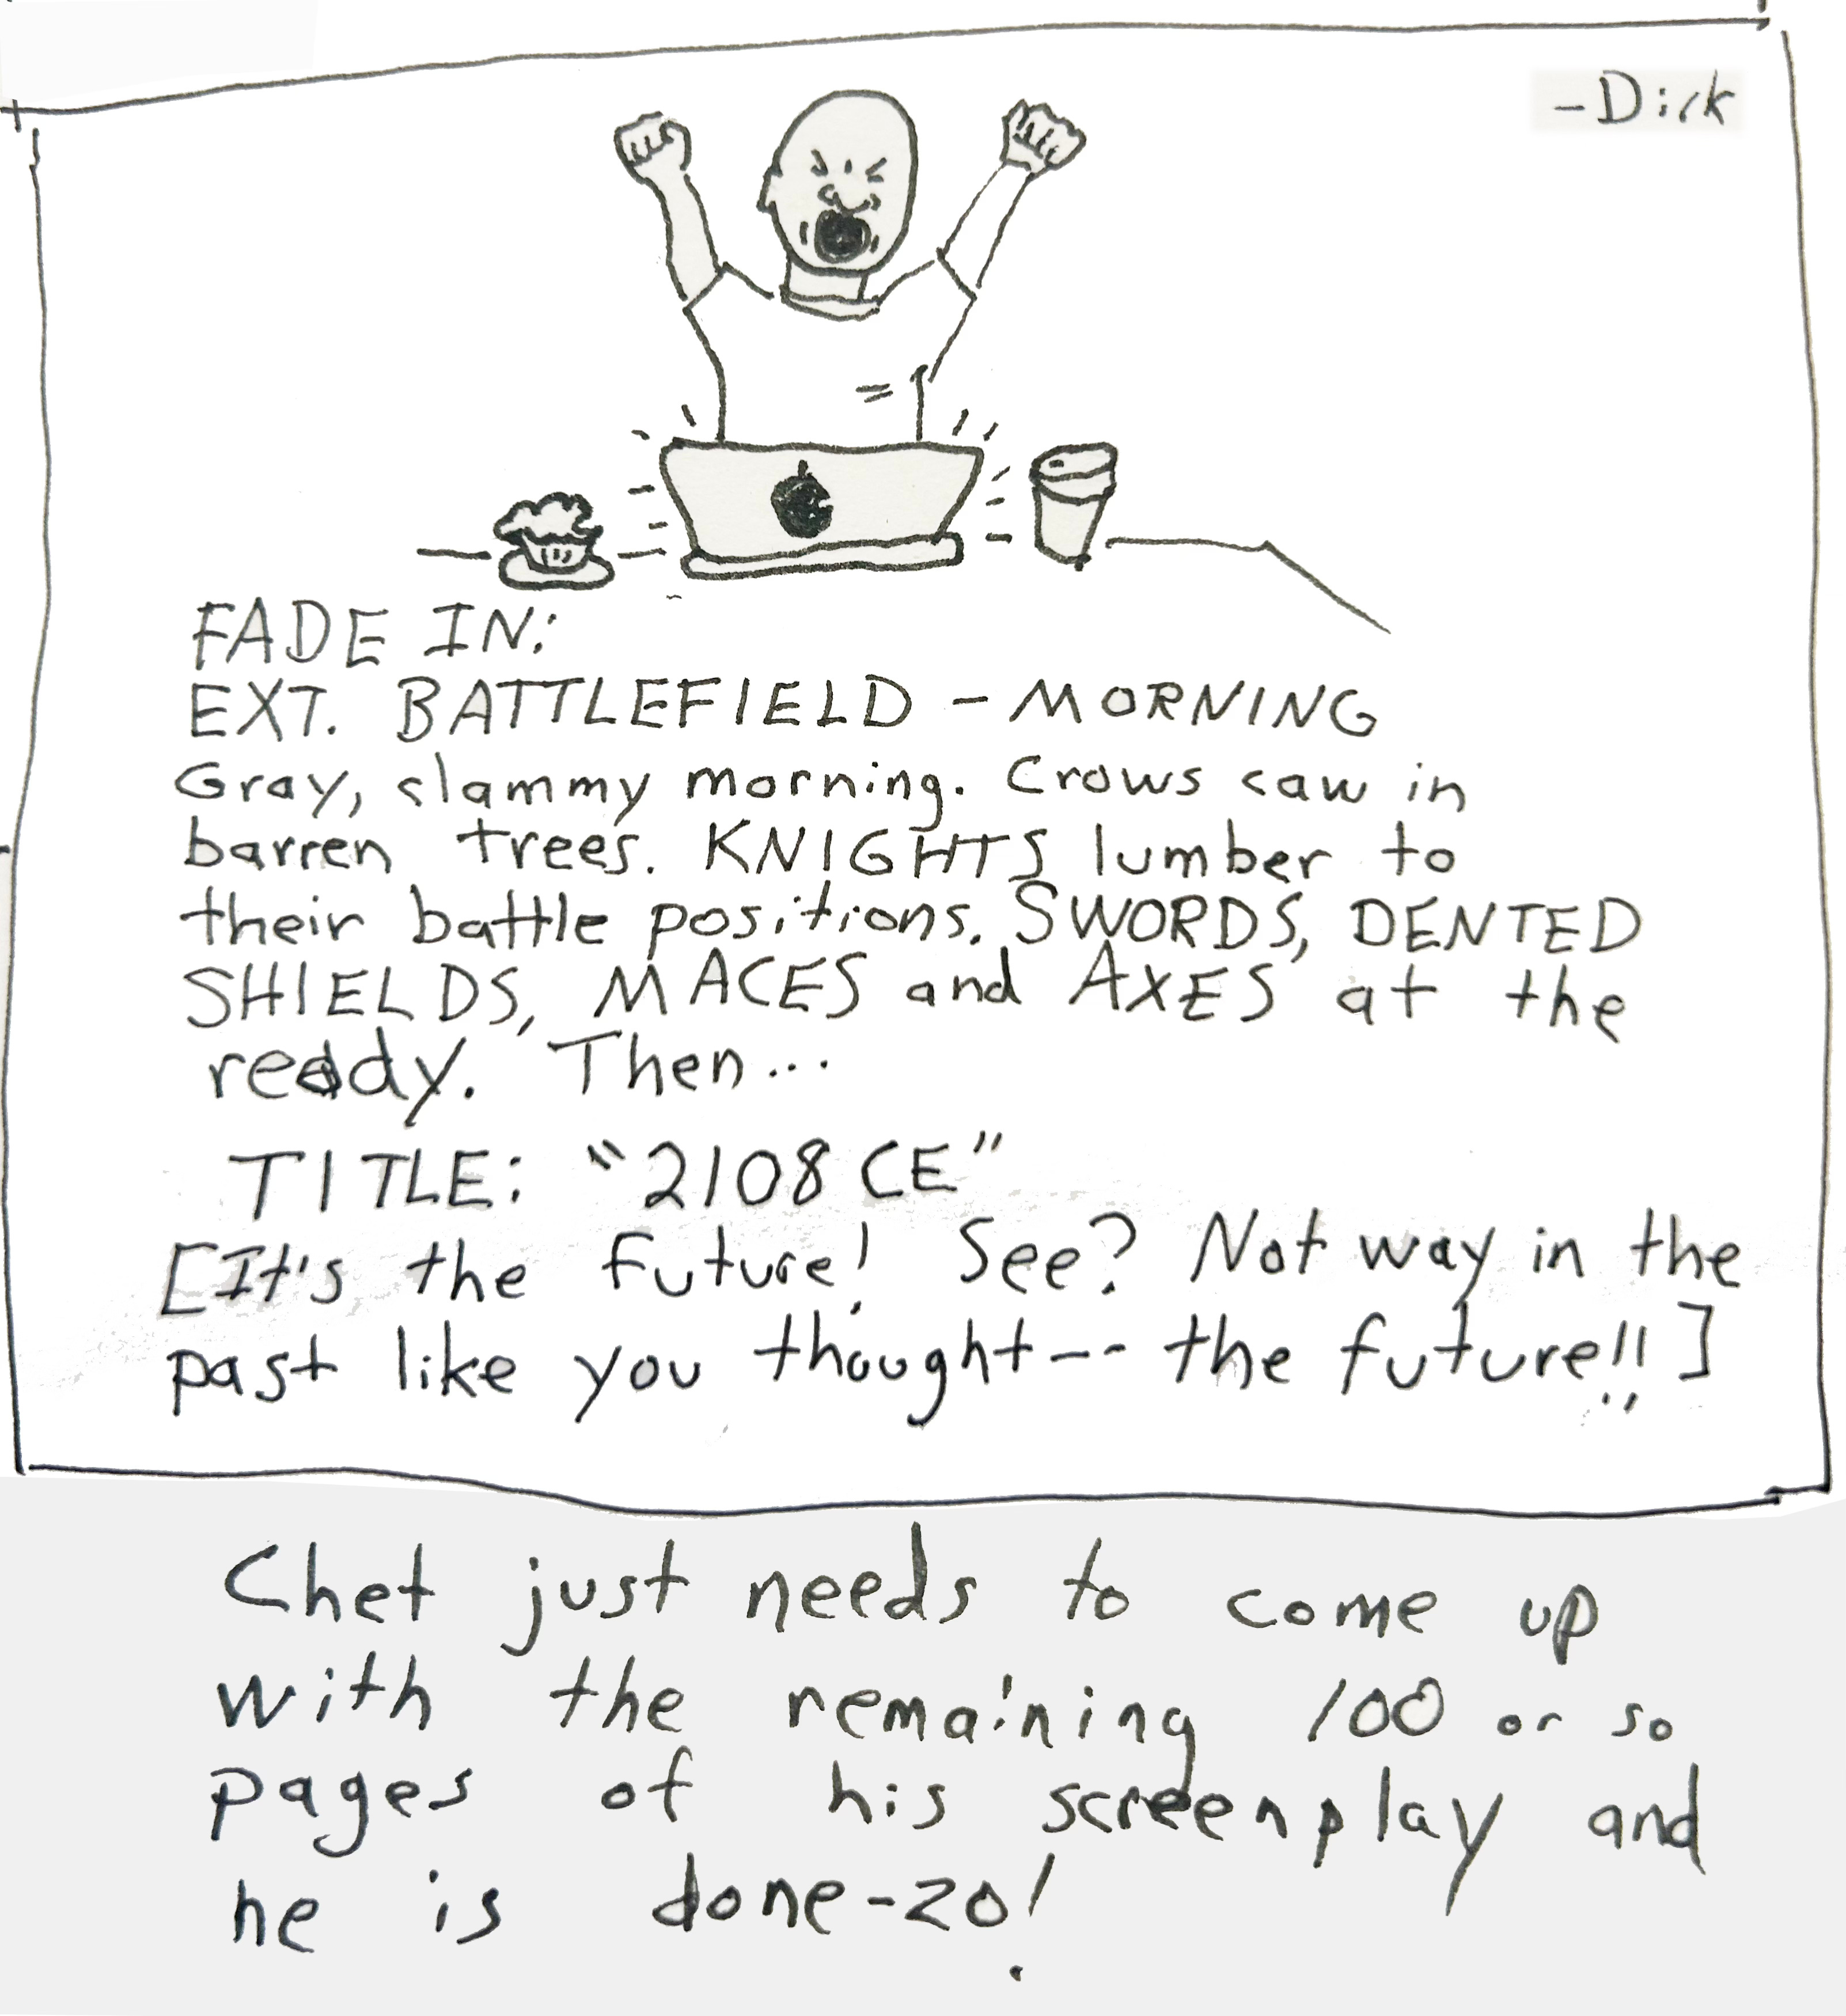 -Dirk
FADE IN:
EXT. BATTLEFIELD - MORNING
Gray, clammy morning. Crows caw in
barren trees. KNIGHTS lumber to
their battle positions. SWORDS, DENTED
SHIELDS, MACES and AXES at the
ready. Then...
TITLE: "2108 CE"
[It's the future! See? Not way in the
past like you thought-- the future!!]
Chet just needs to come up
with the remaining 100 or so
pages of his screenplay and
he is done-zo!